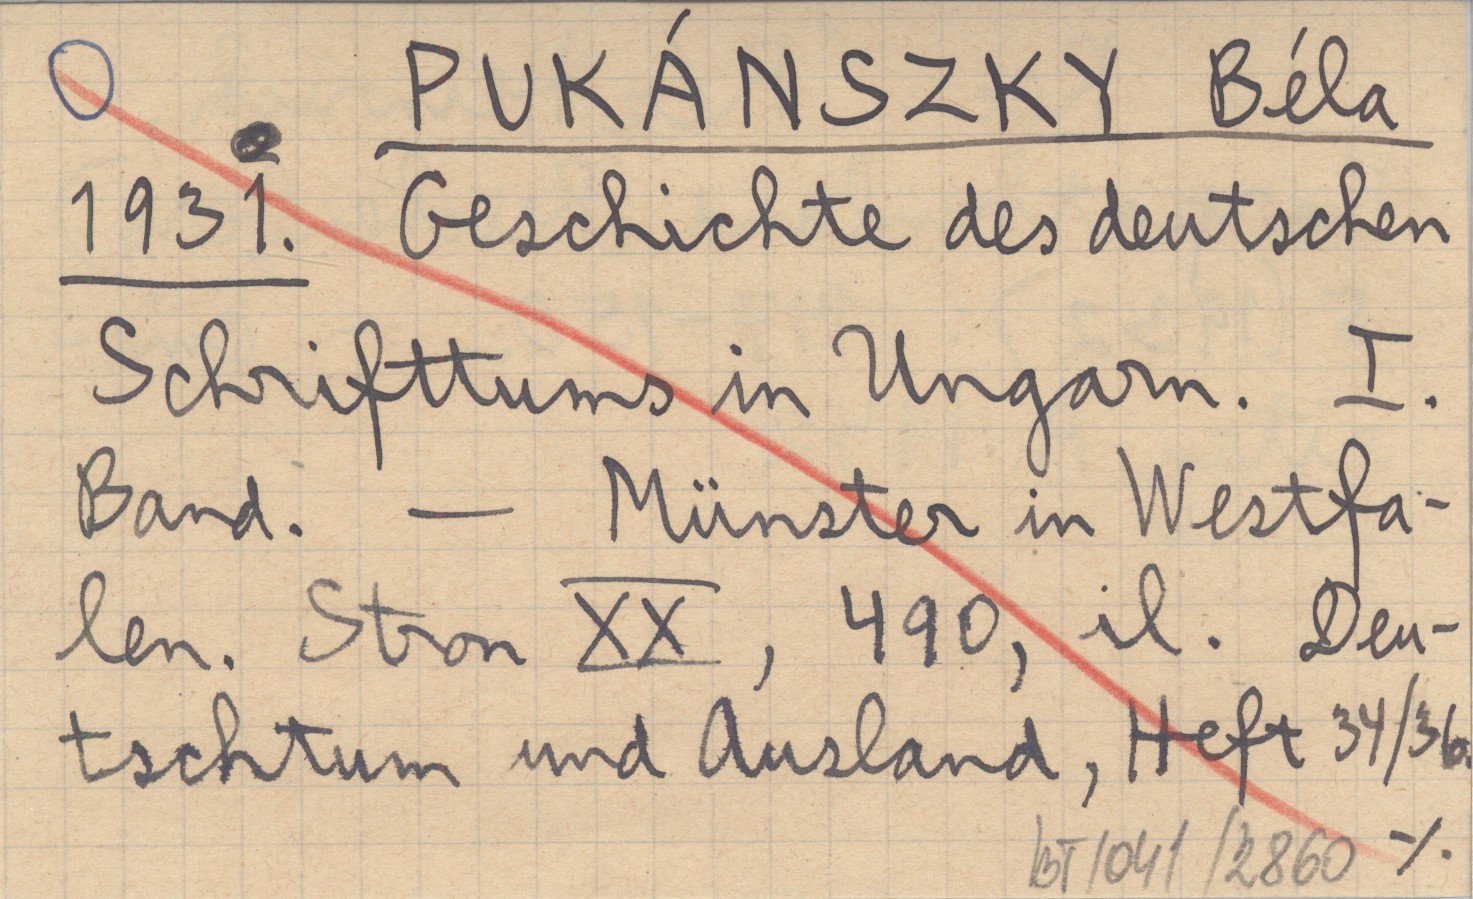 PUKÁNSZKY Béla
1931. Geschichte des deutschen
Schrifttums in Ungarn. I.
Band. — Münster in Westfa-
len. Stron XX, 490, il. Deu-
tschtum und Ausland, Heft 34/36.
BT/041/2860 ./.